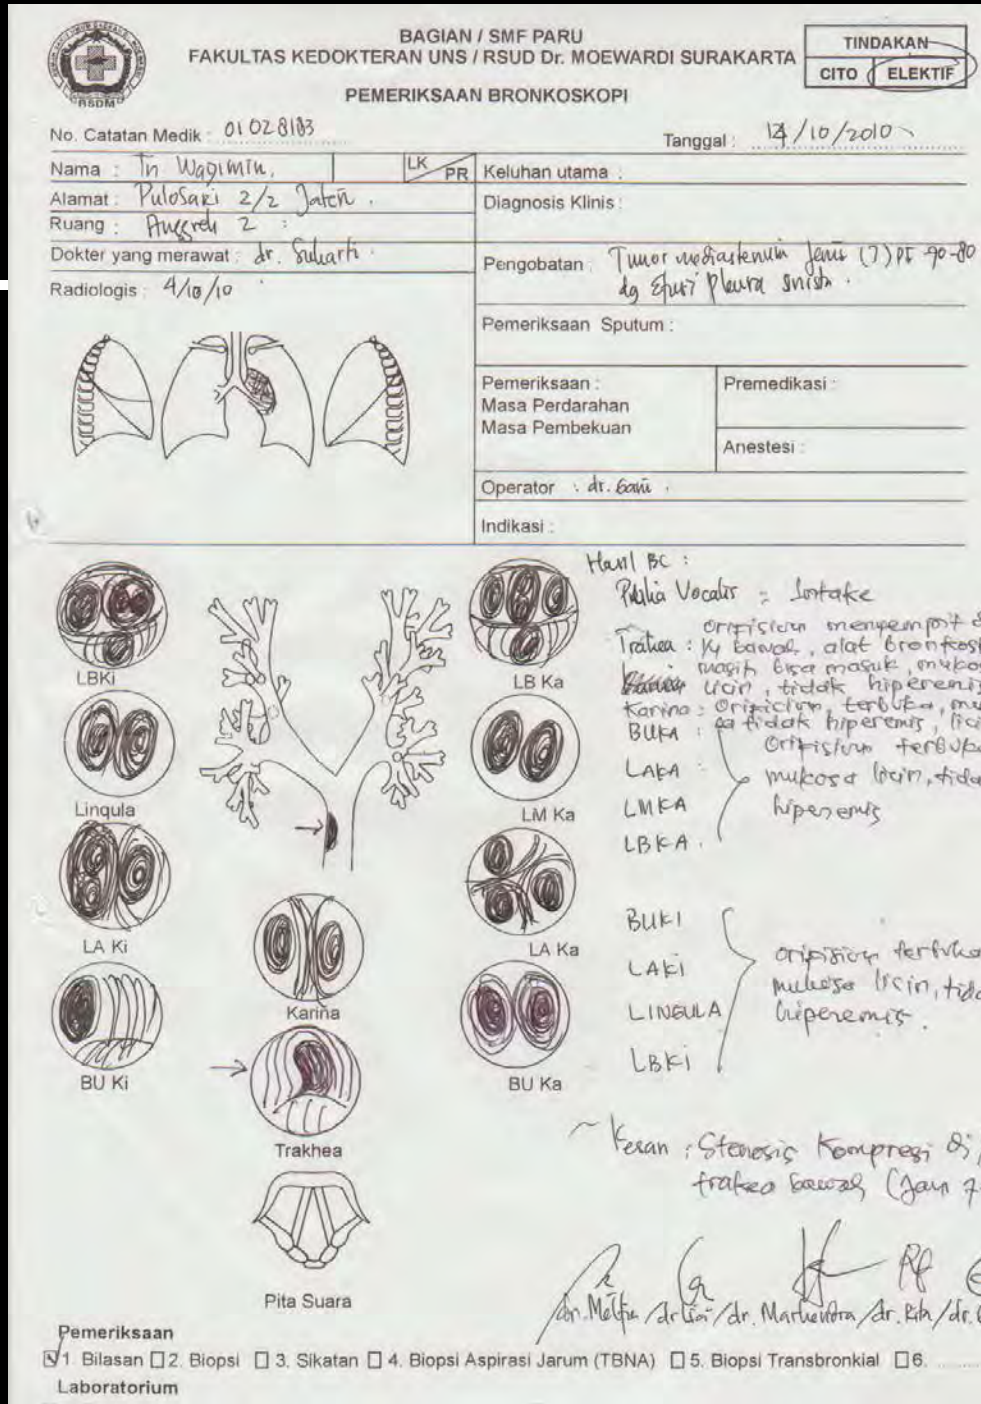 BAGIAN / SMF PARU
FAKULTAS KEDOKTERAN UNS / RSUD Dr. MOEWARDI SURAKARTA
PEMERIKSAAN BRONKOSKOPI
TINDAKAN
CITO ELEKTIF
RSDM
No. Catatan Medik : 01028183
Tanggal : 14/10/2010
Nama : Tn Wagimin. LK PR
Alamat : Pulosari 2/2 Jaten.
Ruang : Anggrek 2
Dokter yang merawat : dr. Suharti
Radiologis : 4/10/10
Keluhan utama :
Diagnosis Klinis :
Pengobatan : Tumor mediastenum Jenis (?) PS 70-80
dg Efusi Pleura
Pemeriksaan Sputum :
Pemeriksaan :
Masa Perdarahan
Masa Pembekuan
Premedikasi :
Anestesi :
Operator : dr. Gani.
Indikasi :
Hasil BC :
Vocalis =
Trakea : orifisium menyempit
1/4 bawah, alat
masih bisa masuk,
licin, tidak hiperemis
Karina : Orificium, terbuka,
tidak hiperemis,
BUKA :
LAKA :
LMKA
LBKA.
Orifisium terbuka
mukosa licin,
hiperemis
BUKI
LAKI
LINGULA
LBKI
orifisium terbuka
mukosa licin,
hiperemis.
Kesan : Stenosis Kompresi
trakea bawah
LBKi
LB Ka
Lingula
LM Ka
LA Ki
LA Ka
Karina
BU Ki
BU Ka
Trakhea
Pita Suara
/dr. Mahendra /dr. Rita /dr.
Pemeriksaan
1. Bilasan 2. Biopsi 3. Sikatan 4. Biopsi Aspirasi Jarum (TBNA) 5. Biopsi Transbronkial 6. ........
Laboratorium